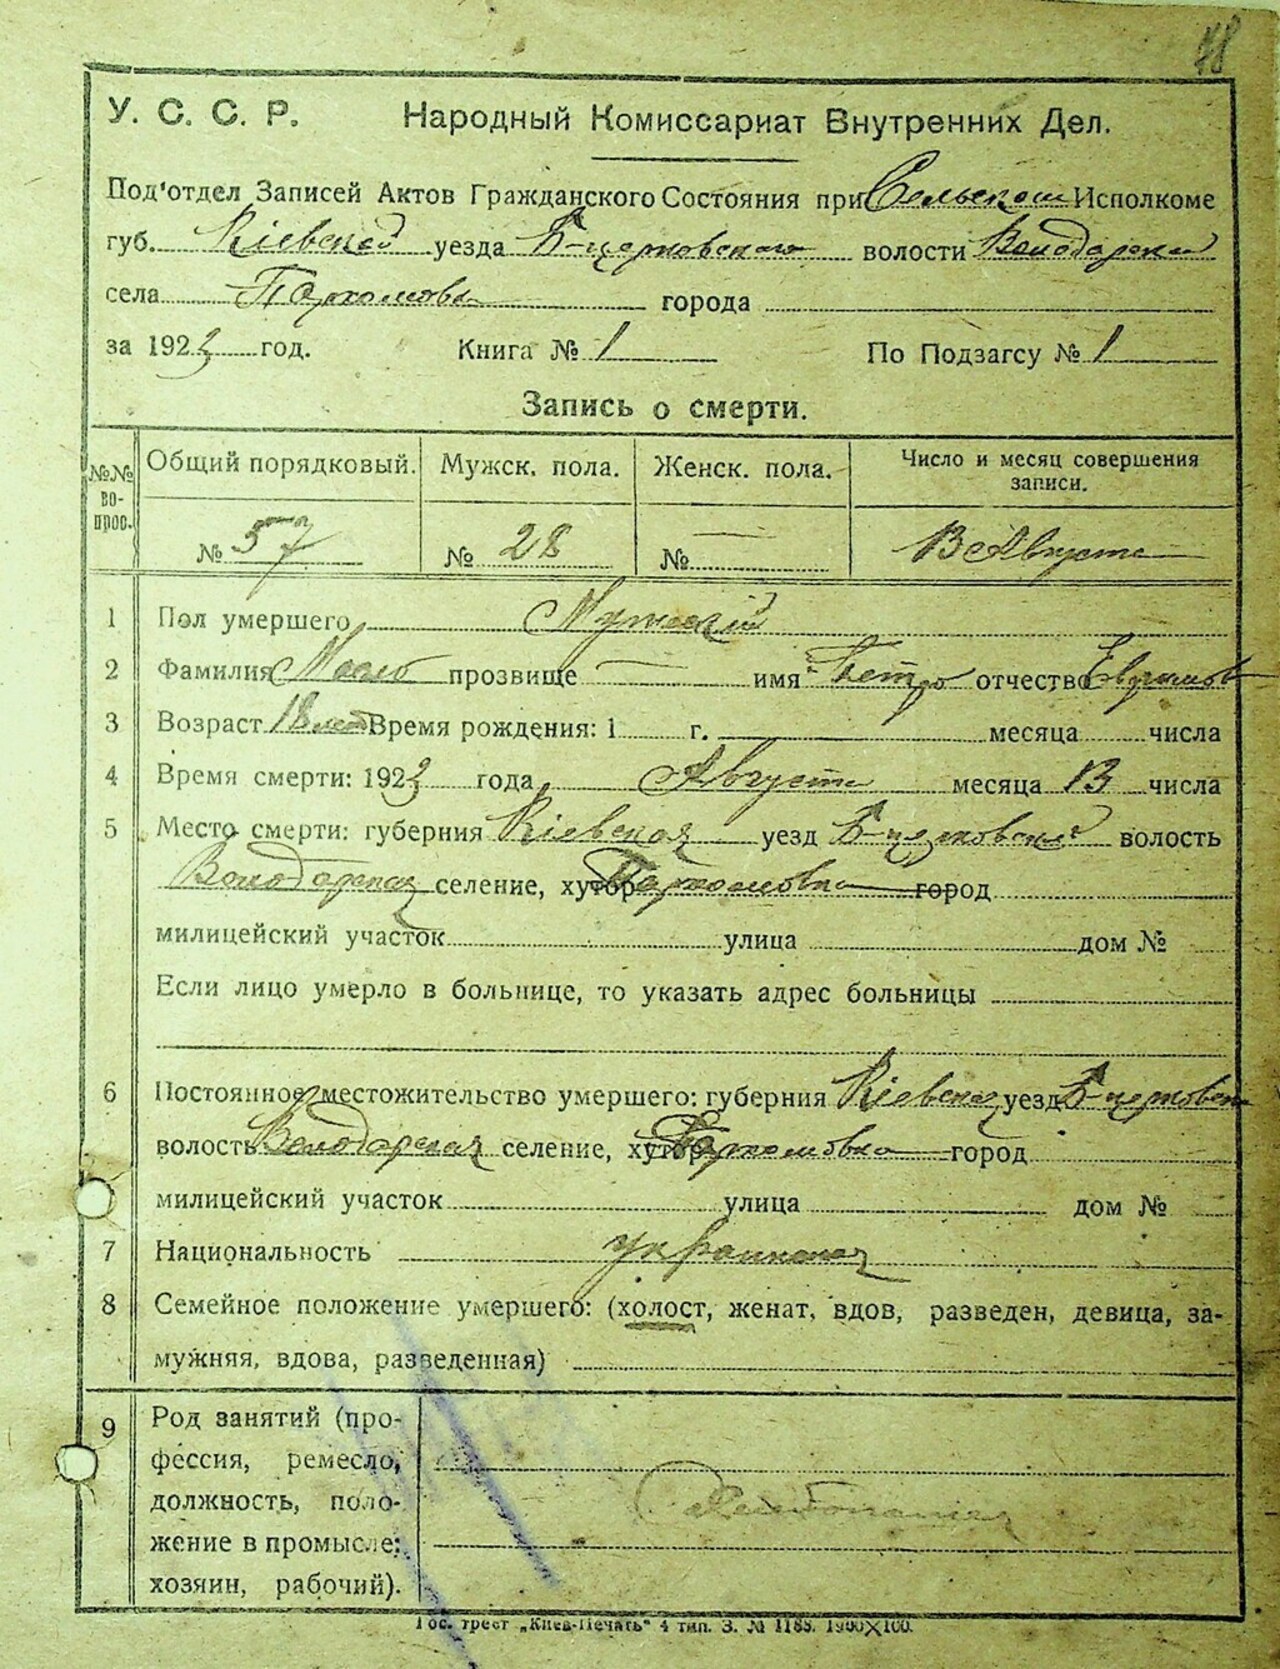 48
У. С. С. Р. Народный Комиссариат Внутренних Дел.
Под'отдел Записей Актов Гражданского Состояния при Сельском Исполкоме
губ. Кіевской уезда Б-церковского волости Володарской
села Пархомовка города
за 1923 год. Книга № 1 По Подзагсу № 1
Запись о смерти.
№№ во- прос. Общий порядковый. Мужск. пола. Женск. пола. Число и месяц совершения записи.
№ 57 № 28 № — 13 Августа
1 Пол умершего Мужский
2 Фамилия прозвище — имя Петро отчество Евфимов
3 Возраст 18 лет Время рождения: 1 г. месяца числа
4 Время смерти: 1923 года Августа месяца 13 числа
5 Место смерти: губерния Кіевская уезд Б-церковский волость
Володарская селение, хутор Пархомовка город
милицейский участок улица дом №
Если лицо умерло в больнице, то указать адрес больницы
6 Постоянное местожительство умершего: губерния Кіевская уезд Б-церковск
волость Володарская селение, хутор Пархомовка город
милицейский участок улица дом №
7 Национальность украинская
8 Семейное положение умершего: (холост, женат, вдов, разведен, девица, за-
мужняя, вдова, разведенная)
9 Род занятий (про-
фессия, ремесло,
должность, поло- Хлебопашец
жение в промысле:
хозяин, рабочий).
Гос. трест „Киев-Печать" 4 тип. З. № 1185. 1900×100.